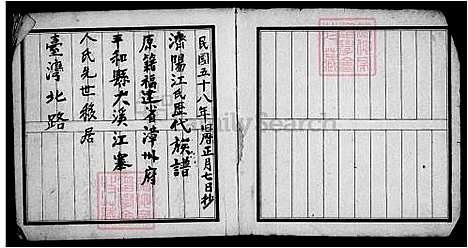 民國五十八年曆正月七日抄
濟陽江氏歷代族譜
原籍福建省漳州府
平和縣大溪江寨
人氏先世移居
臺灣北路
FamilySearch